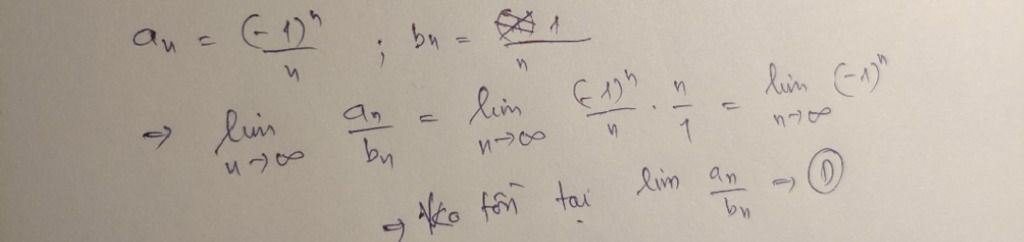 aₙ = (-1)ⁿ/n ; bₙ = 1/n
⇒ lim n→∞ aₙ/bₙ = lim n→∞ (-1)ⁿ/n · n/1 = lim n→∞ (-1)ⁿ
⇒ ko tồn tại lim aₙ/bₙ ⇒ Ⓓ